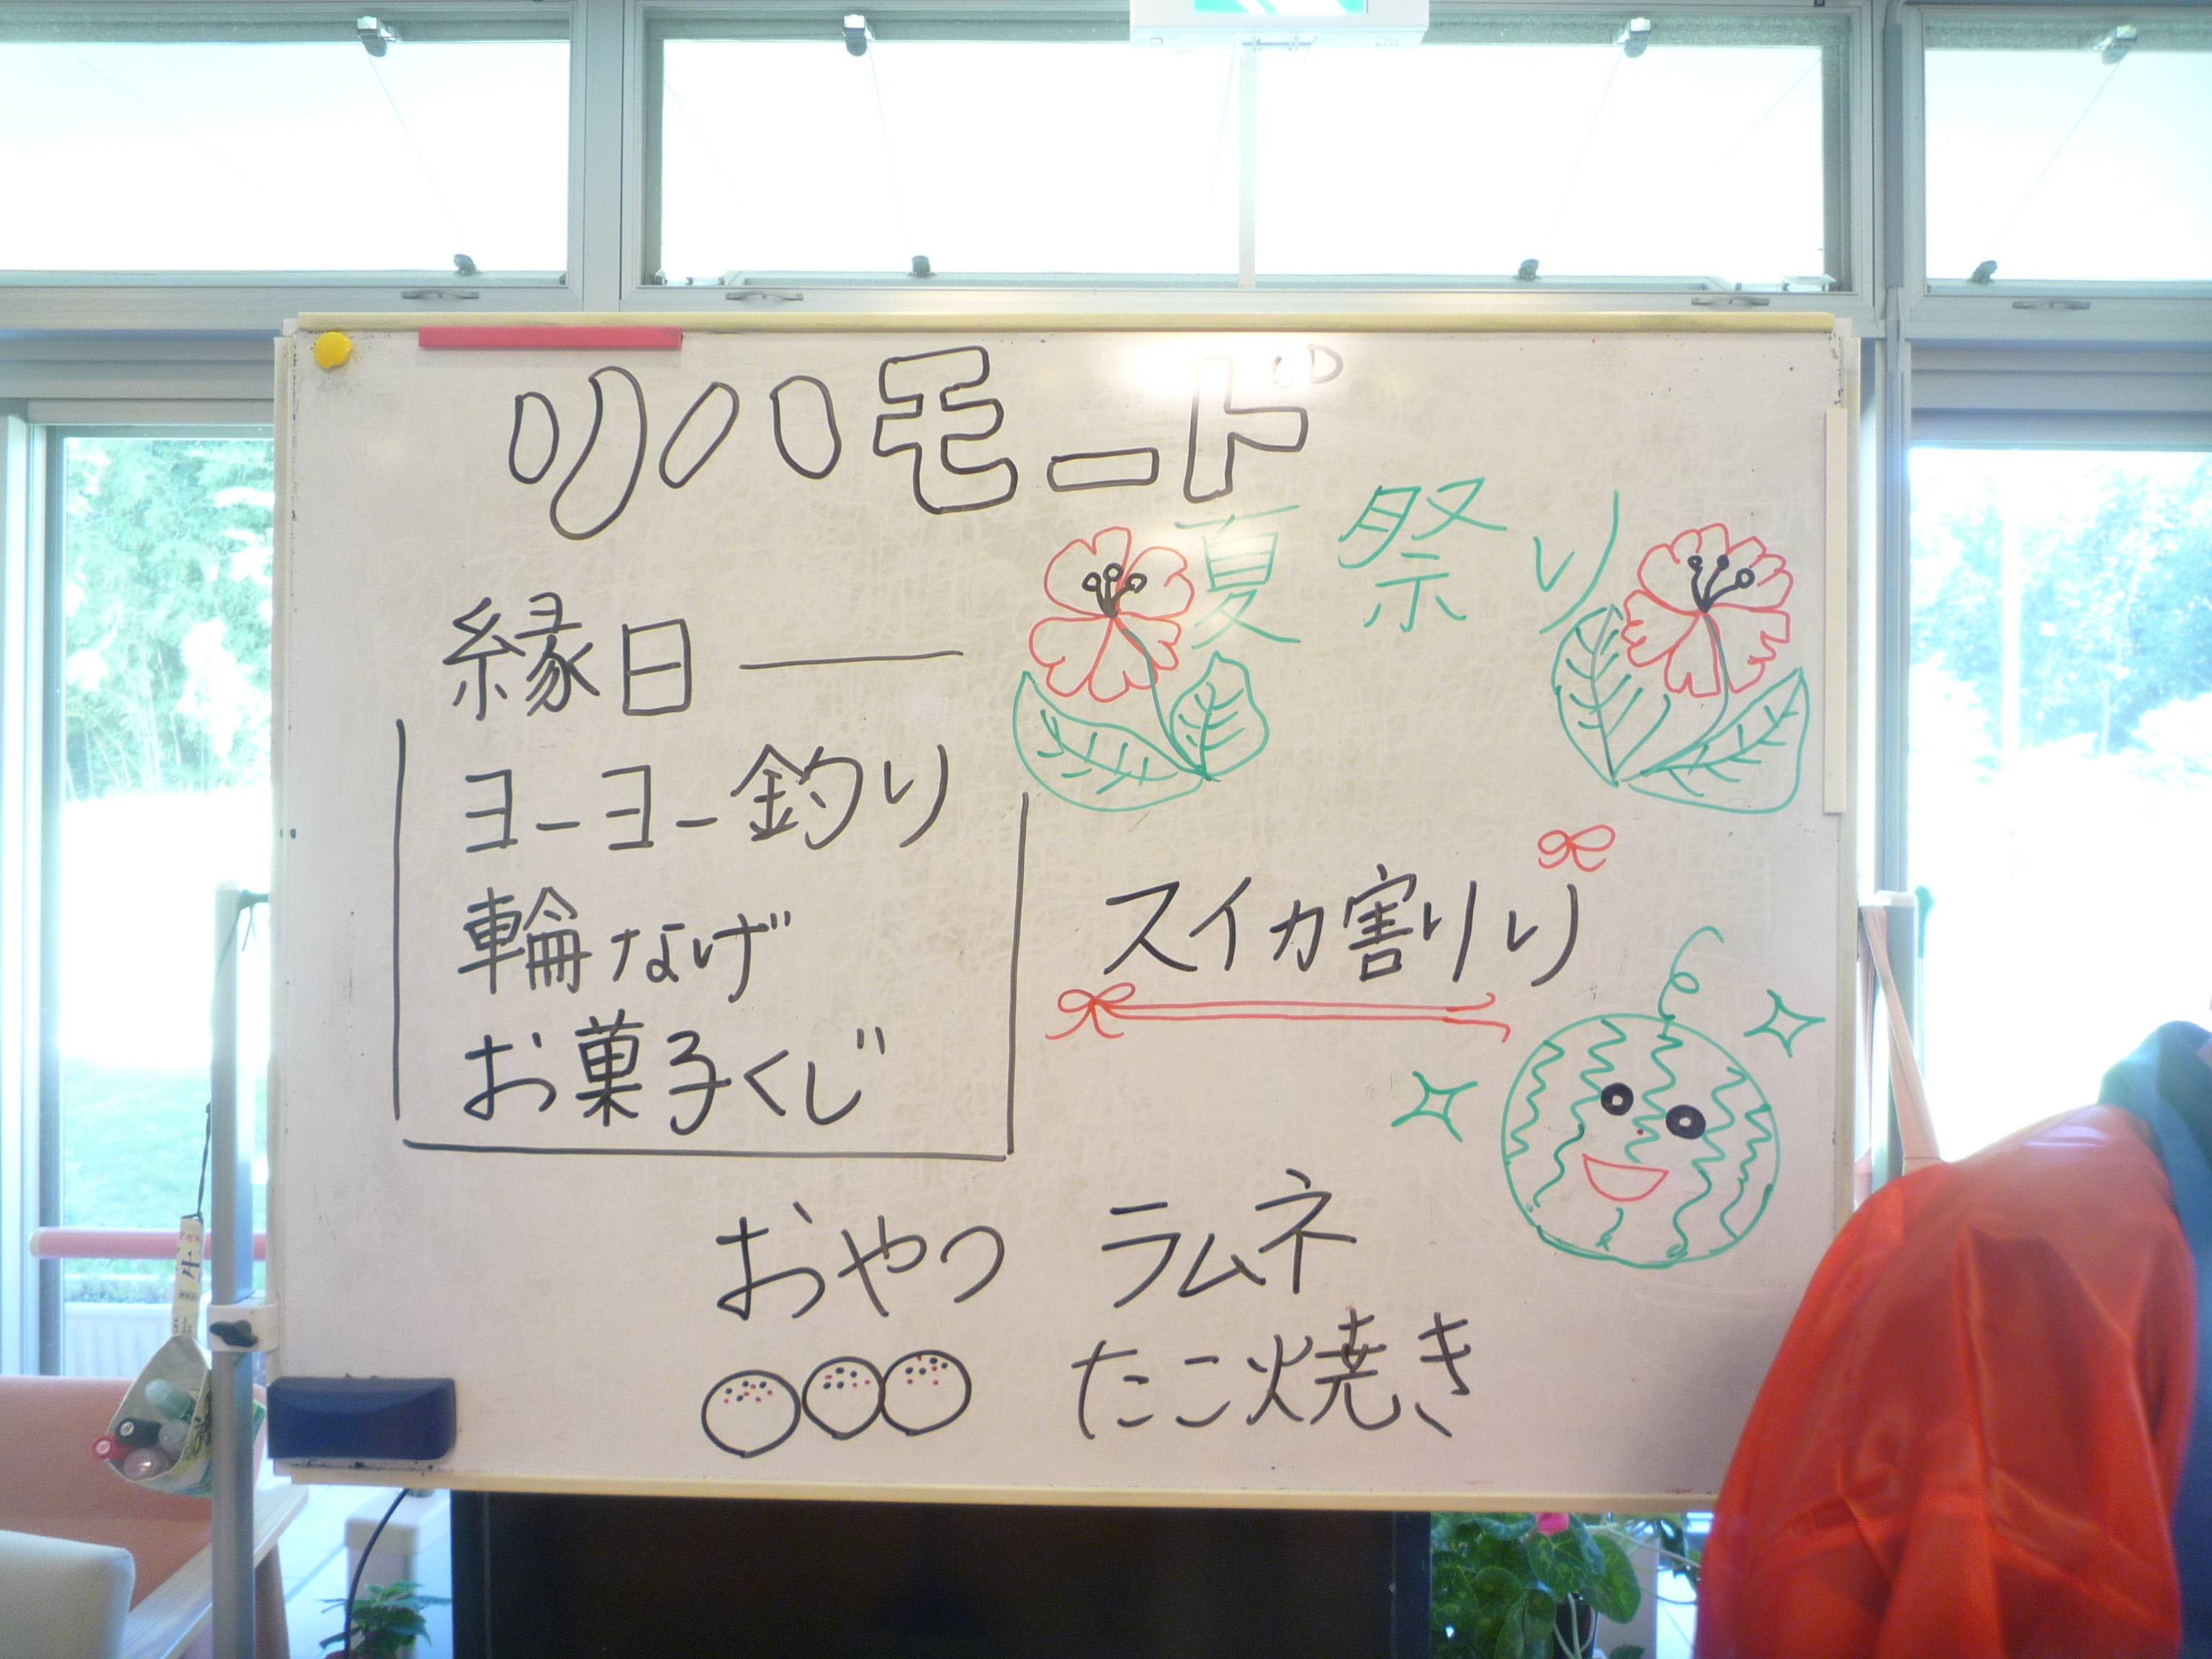 リハモード
夏祭り
縁日
ヨーヨー釣り
輪なげ
お菓子くじ
スイカ割り
おやつ ラムネ
たこ焼き